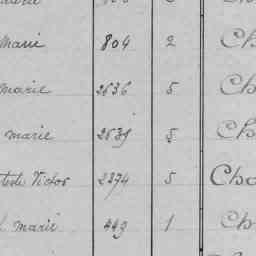 Marie 804 2 Ch
marie 2636 5 Ch
marie 2639 5 Ch
Victor 2274 5 Cho
marie 449 1 Ch